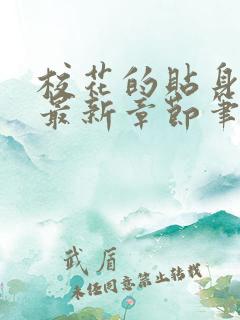 校花的贴身
最新章节笔
武盾
未经同意禁止转载